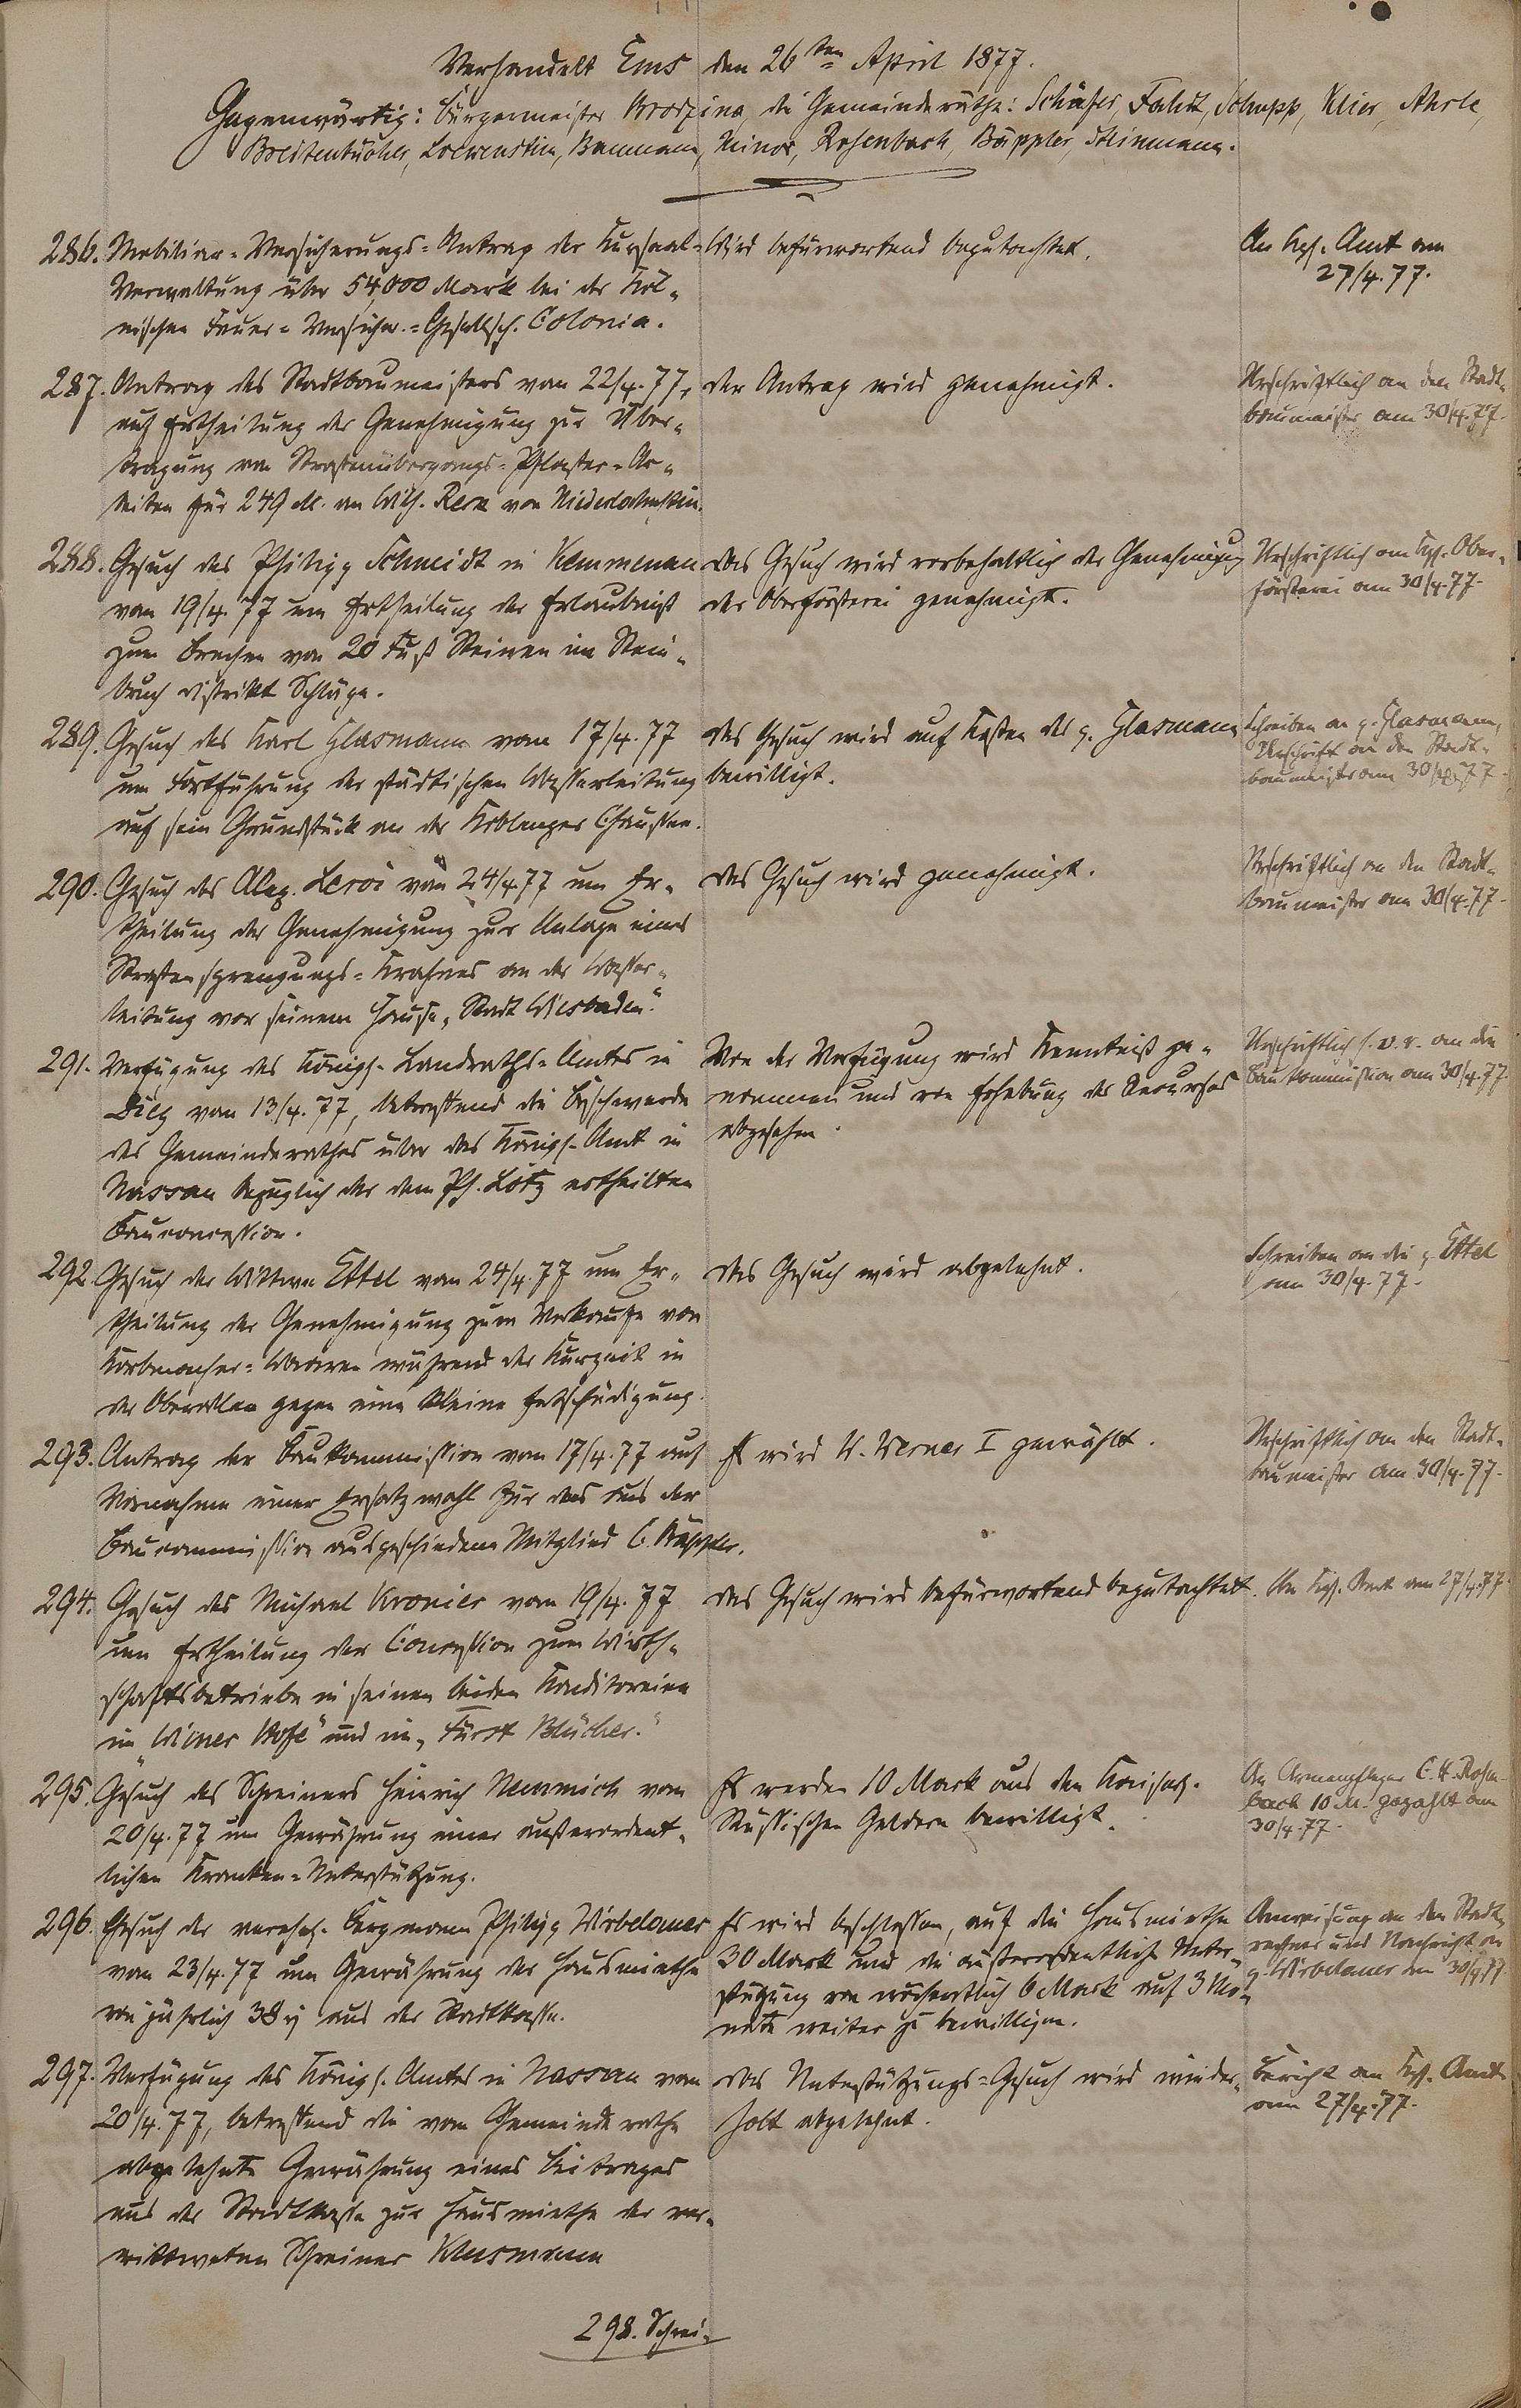 Verhandelt Ems den 26ten April 1877.
Gegenwärtig: Bürgermeister Brodzina, die Gemeinderäthe: Schäfer, Fahdt, Schupp, Klier, Ahrle,
Breitenbücher, Loewenstein, Baumann, Minor, Rosenbach, Büppler, Steinmann.
286. Mobiliar-Versicherungs-Antrag der Kursaal-
Verwaltung über 54,000 Mark bei der Köl-
nischen Feuer-Versicher.-Gesellsch. Colonia.
Wird befürwortend begutachtet.
An Kgl. Amt am
27/4.77.
287. Antrag des Stadtbaumeisters vom 22/4.77,
auf Ertheilung der Genehmigung zur Über-
tragung von Straßenübergangs-Pflaster-Ar-
beiten für 249 M. an Wilh. Rex von Niederlahnstein.
Der Antrag wird genehmigt.
Urschriftlich an den Stadt-
baumeister am 30/4.77.
288. Gesuch des Philipp Schmidt in Kemmenau
vom 19/4.77 um Ertheilung der Erlaubniß
zum Brechen von 20 Fuß Steinen im Stein-
bruch Distrikt Schläge.
Das Gesuch wird vorbehaltlich der Genehmigung
der Oberförsterei genehmigt.
Urschriftlich an Kgl. Ober-
försterei am 30/4.77.
289. Gesuch des Karl Glasmann vom 17/4.77
um Fortführung der städtischen Wasserleitung
auf sein Grundstück an der Koblenzer Chaussee.
Das Gesuch wird auf Kosten des p. Glasmann
bewilligt.
Schreiben an p. Glasmann,
Urschrift an den Stadt-
baumeister am 30/4.77.
290. Gesuch des Alex. Leroi vom 24/4.77 um Er-
theilung der Genehmigung zur Anlage eines
Straßensprengungs-Krahnes an der Wasser-
leitung vor seinem Hause „Stadt Wiesbaden."
Das Gesuch wird genehmigt.
Urschriftlich an den Stadt-
baumeister am 30/4.77.
291. Verfügung des Königl. Landraths-Amtes in
Diez vom 13/4.77, betreffend die Beschwerde
des Gemeinderathes über das Königl. Amt in
Nassau bezüglich der dem Ph. Lötz ertheilten
Bauconcession.
Von der Verfügung wird Kenntniß ge-
nommen und von Erhebung des Recurses
abgesehen.
Urschriftlich s. v. r. an die
Baukommission am 30/4.77.
292. Gesuch der Wittwe Ettel vom 24/4.77 um Er-
theilung der Genehmigung zum Verkaufe von
Korbmacher-Waaren während der Kurzeit in
der Oberallee gegen eine kleine Entschädigung.
Das Gesuch wird abgelehnt.
Schreiben an die p. Ettel
am 30/4.77.
293. Antrag der Baukommission vom 17/4.77 auf
Vornahme einer Ersatzwahl für das aus der
Baucommission ausgeschiedene Mitglied C. Büppler.
Es wird W. Werner I gewählt.
Urschriftlich an den Stadt-
baumeister am 30/4.77.
294. Gesuch des Michael Kronier vom 19/4.77
um Ertheilung der Concession zum Wirth-
schaftsbetriebe in seinen beiden Konditoreien
im „Wiener Hofe" und im „Fürst Blücher."
Das Gesuch wird befürwortend begutachtet.
An Kgl. Amt am 27/4.77.
295. Gesuch des Schreiners Heinrich Nemmich vom
20/4.77 um Gewährung einer außerordent-
lichen Kranken-Unterstützung.
Es werden 10 Mark aus den Kaiserl.
Russischen Geldern bewilligt.
An Armenpfleger C. H. Rosen-
bach 10 M. gezahlt am
30/4.77.
296. Gesuch der verehel. Bergmann Philipp Wirbelauer
vom 23/4.77 um Gewährung der Hausmiethe
von jährlich 38 aus der Stadtkasse.
Es wird beschlossen, auf die Hausmiethe
30 Mark und die außerordentliche Unter-
stützung von wöchentlich 6 Mark auf 3 Mo-
nate weiter zu bewilligen.
Anweisung an den Stadt-
rechner und Nachricht an
p. Wirbelauer am 30/4.77.
297. Verfügung des Königl. Amtes in Nassau vom
20/4.77, betreffend die vom Gemeinderathe
abgelehnte Gewährung eines Beitrages
aus der Stadtkasse zur Hausmiethe der ver-
wittweten Schreiner Klusmann
Das Unterstützungs-Gesuch wird wieder-
holt abgelehnt.
Bericht an Kgl. Amt
am 27/4.77.
298. Schrei-